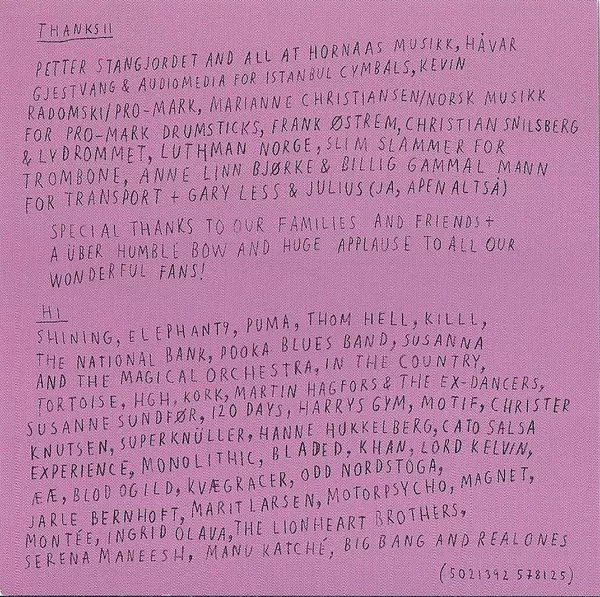 THANKS!!
PETTER STANGJORDET AND ALL AT HORNAAS MUSIKK, HÅVAR
GJESTVANG & AUDIOMEDIA FOR ISTANBUL CYMBALS, KEVIN
RADOMSKI/PRO-MARK, MARIANNE CHRISTIANSEN/NORSK MUSIKK
FOR PRO-MARK DRUMSTICKS, FRANK ØSTREM, CHRISTIAN SNILSBERG
& LYDROMMET, LUTHMAN NORGE, SLIM SLAMMER FOR
TROMBONE, ANNE LINN BJØRKE & BILLIG GAMMAL MANN
FOR TRANSPORT + GARY LESS & JULIUS (JA, APEN ALTSÅ)
SPECIAL THANKS TO OUR FAMILIES AND FRIENDS +
A ÜBER HUMBLE BOW AND HUGE APPLAUSE TO ALL OUR
WONDERFUL FANS!
HI
SHINING, ELEPHANT9, PUMA, THOM HELL, KILLL,
THE NATIONAL BANK, POOKA BLUES BAND, SUSANNA
AND THE MAGICAL ORCHESTRA, IN THE COUNTRY,
TORTOISE, HGH, KORK, MARTIN HAGFORS & THE EX-DANCERS,
SUSANNE SUNDFØR, 120 DAYS, HARRYS GYM, MOTIF, CHRISTER
KNUTSEN, SUPERKNÜLLER, HANNE HUKKELBERG, CATO SALSA
EXPERIENCE, MONOLITHIC, BLADED, KHAN, LORD KELVIN,
ÆÆ, BLOD OG ILD, KVÆGRACER, ODD NORDSTOGA,
JARLE BERNHOFT, MARIT LARSEN, MOTORPSYCHO, MAGNET,
MONTÉE, INGRID OLAVA, THE LIONHEART BROTHERS,
SERENA MANEESH, MANU KATCHÉ, BIG BANG AND REALONES
(5021392 578125)